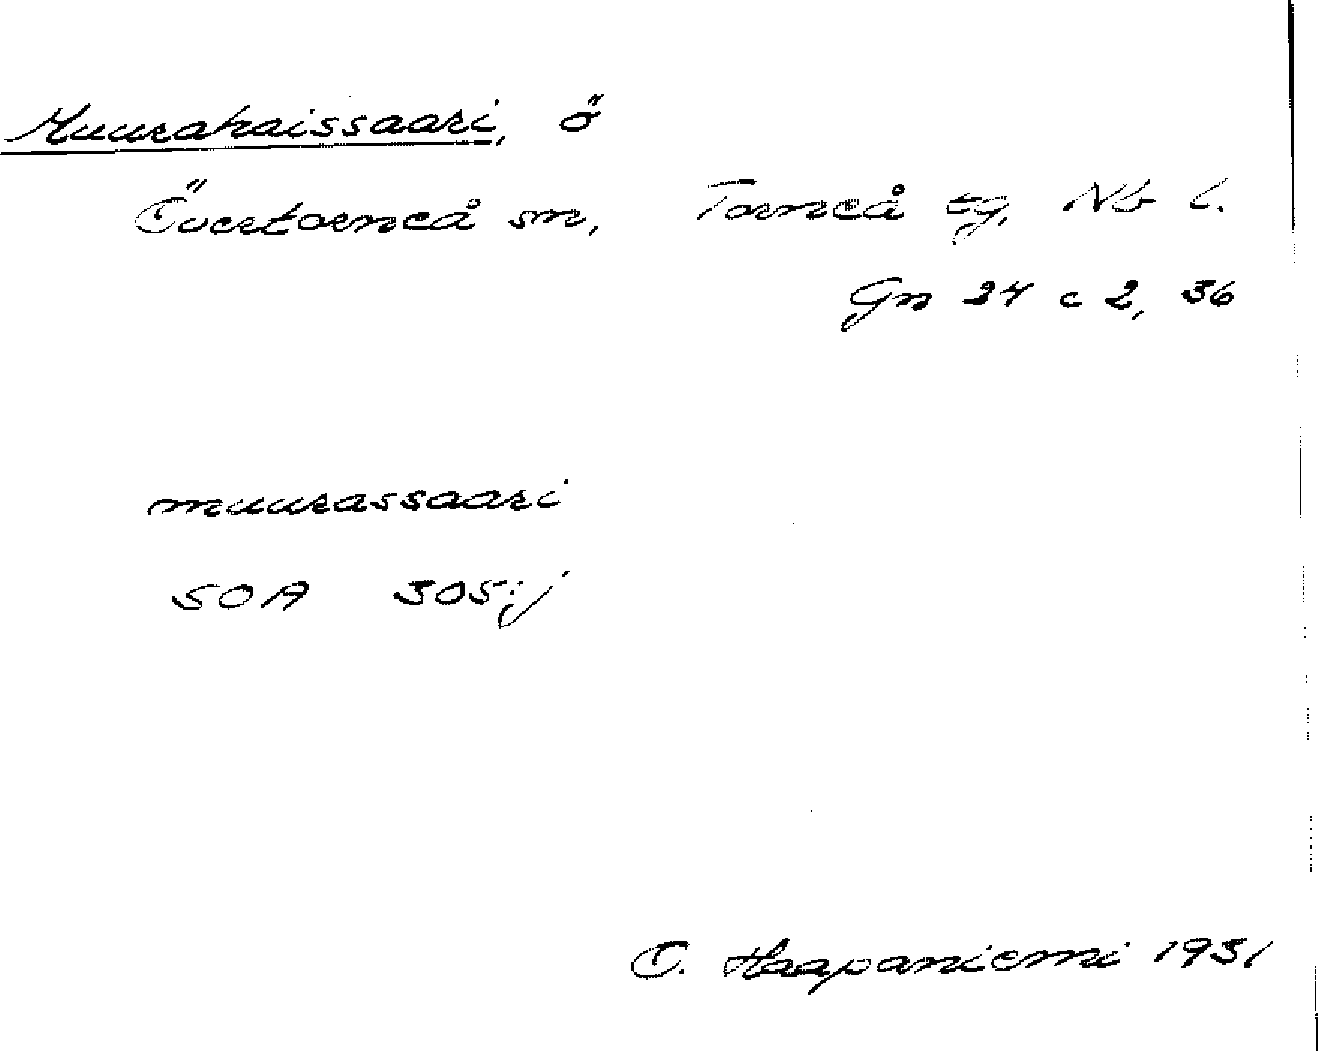 Muurahaissaari, ö
Övertorneå sn, Torneå tg, Nb l.
Gn 24 c 2, 36
muurassaari
SOA 305:j
O. Haapaniemi 1931